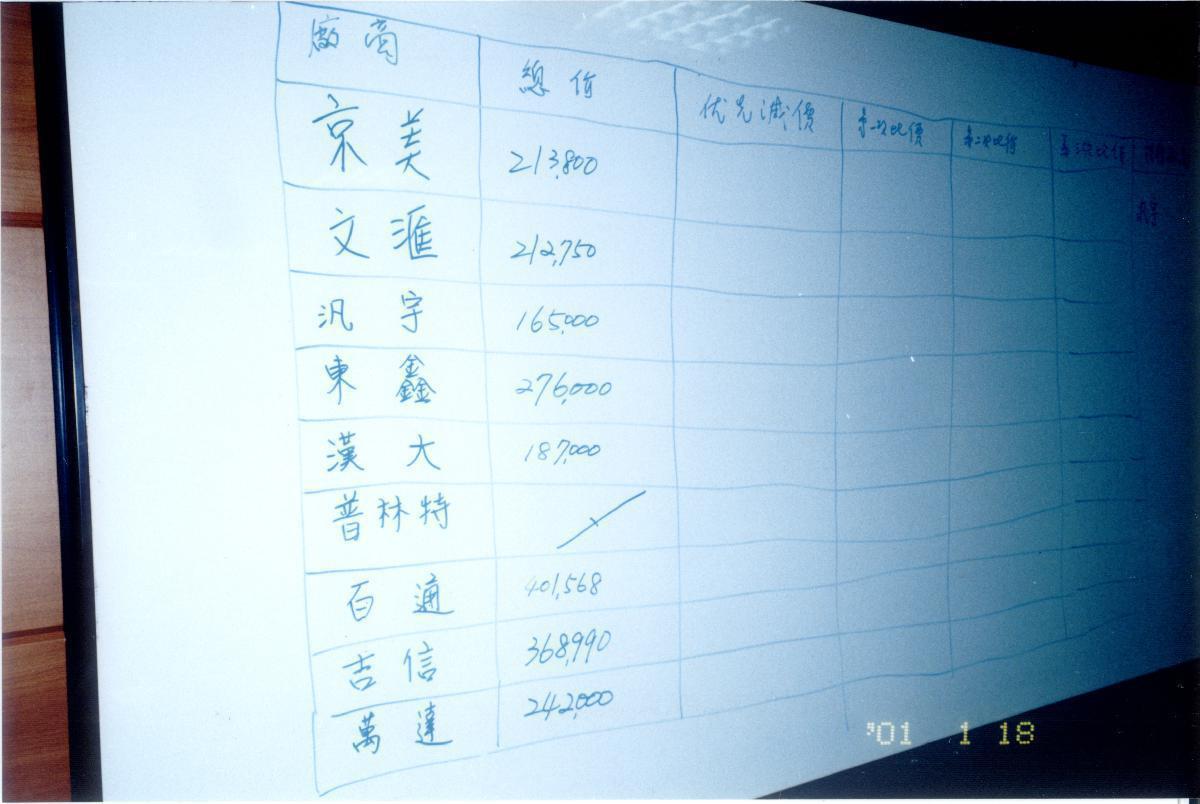 廠商 總价 优先減價 第一次比價 第二次比價 第三次比價
京美 213,800
文滙 212,750
汎宇 165,000
東鑫 276,000
漢大 187,000
普林特
百通 401,568
吉信 368,990
萬達 242,000
'01 1 18